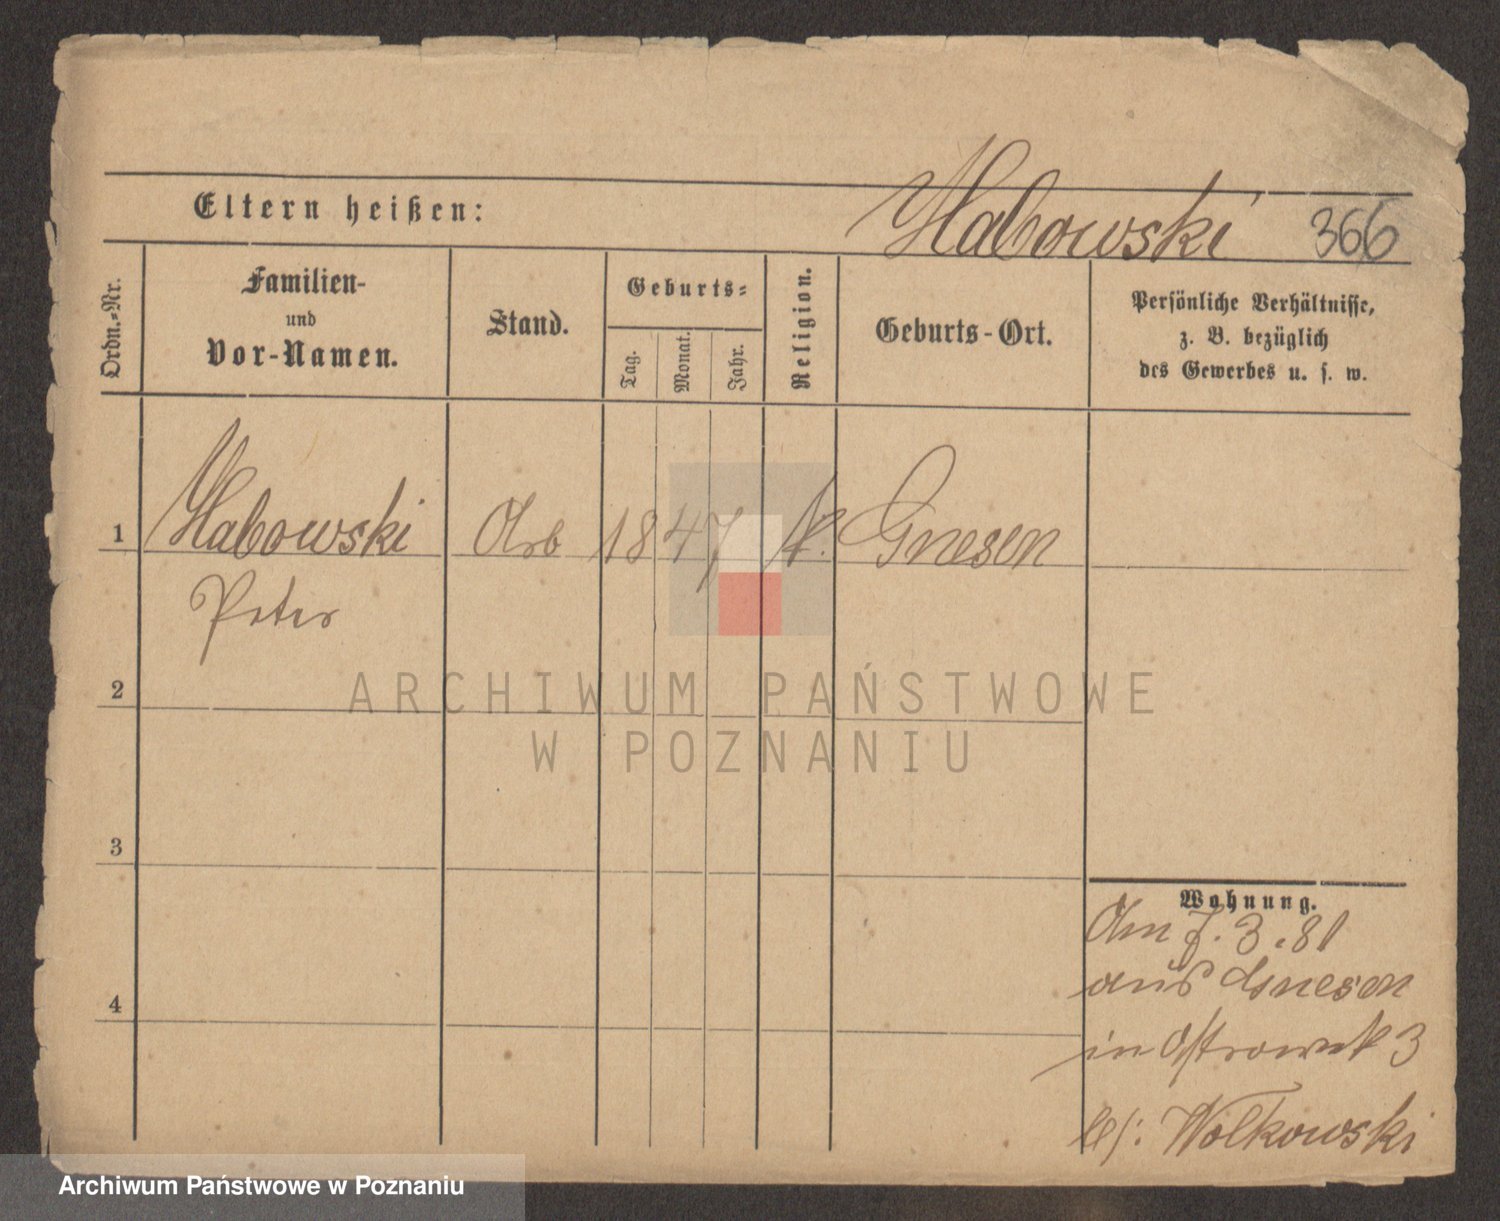 Eltern heißen:
Habowski 366
Ordn.-Nr.
Familien-
und
Vor-Namen.
Stand.
Geburts-
Tag.
Monat.
Jahr.
Religion.
Geburts-Ort.
Persönliche Verhältnisse,
z. B. bezüglich
des Gewerbes u. s. w.
1 Habowski Arb 1847 k. Gnesen
Peter
2
3
4
Wohnung.
Am 7.3.81
aus Gnesen
in Ostrowek 3
b/: Wolkowski
ARCHIWUM PAŃSTWOWE
W POZNANIU
Archiwum Państwowe w Poznaniu